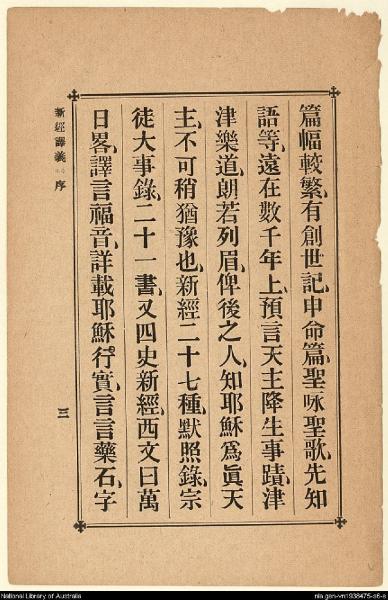 篇幅較繁、有創世記、申命篇、聖咏聖歌、先知
語等、遠在數千年上、預言天主降生事蹟、津
津樂道、朗若列眉、俾後之人、知耶穌爲眞天
主、不可稍猶豫也、新經二十七種、默照錄、宗
徒大事錄、二十一書、又四史新經、西文曰萬
日畧、譯言福音、詳載耶穌行實、言言藥石、字
新經譯義 序
三
National Library of Australia
nla.gen-vn1938475-s6-e